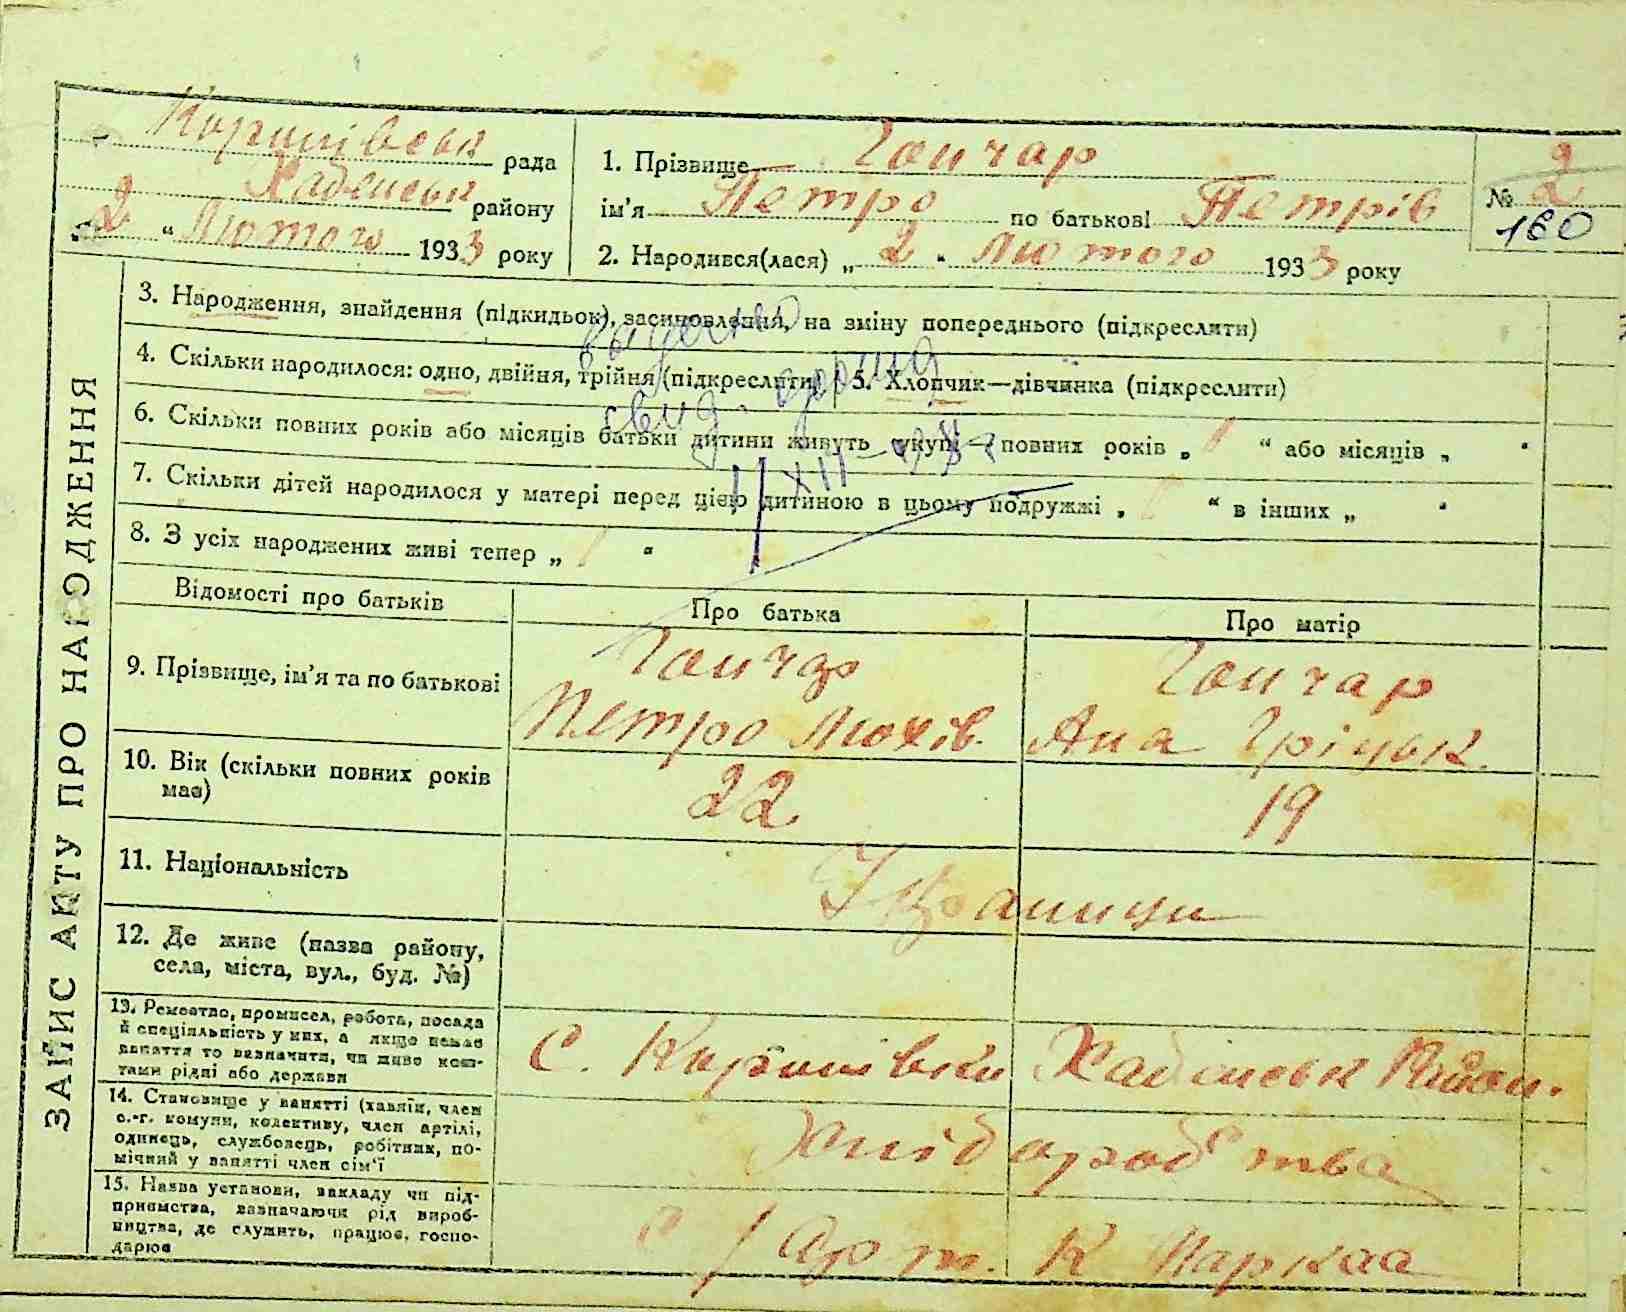 рада 1. Прізвище Гончар № 2
Хабенськ району ім'я Петро по батькові Петрів 2
2 " Лютого 1933 року 2. Народився(лася) „ 2 " Лютого 1933 року 160
ЗАПИС АКТУ ПРО НАРОДЖЕННЯ
3. Народження, знайдення (підкидьок), засиновлення, на зміну попереднього (підкреслити)
4. Скільки народилося: одно, двійня, трійня (підкреслити) 5. Хлопчик—дівчинка (підкреслити)
6. Скільки повних років або місяців батьки дитини живуть укупі— повних років „ 1 " або місяців „ "
7. Скільки дітей народилося у матері перед цією дитиною в цьому подружжі „ 1 " в інших „ "
8. З усіх народжених живі тепер „ 1 "
Відомості про батьків Про батька Про матір
9. Прізвище, ім'я та по батькові Гончар Гончар
Петро Анна
10. Вік (скільки повних років має) 22 19
11. Національність Українци
12. Де живе (назва району,
села, міста, вул., буд. №)
13. Ремество, промисел, робота, посада
й спеціяльність у них, а якщо немає
заняття то зазначити, чи живе кош-
тами рідні або держави
С. Хабенськ Район.
14. Становище у занятті (хазяїн, член
с.-г. комуни, колективу, член артілі,
одинець, службовець, робітник, по-
мічний у занятті член сім'ї
15. Назва установи, закладу чи під-
приємства, зазначаючи рід вироб-
ництва, де служить, працює, госпо-
дарює
С/Арт. К Маркса